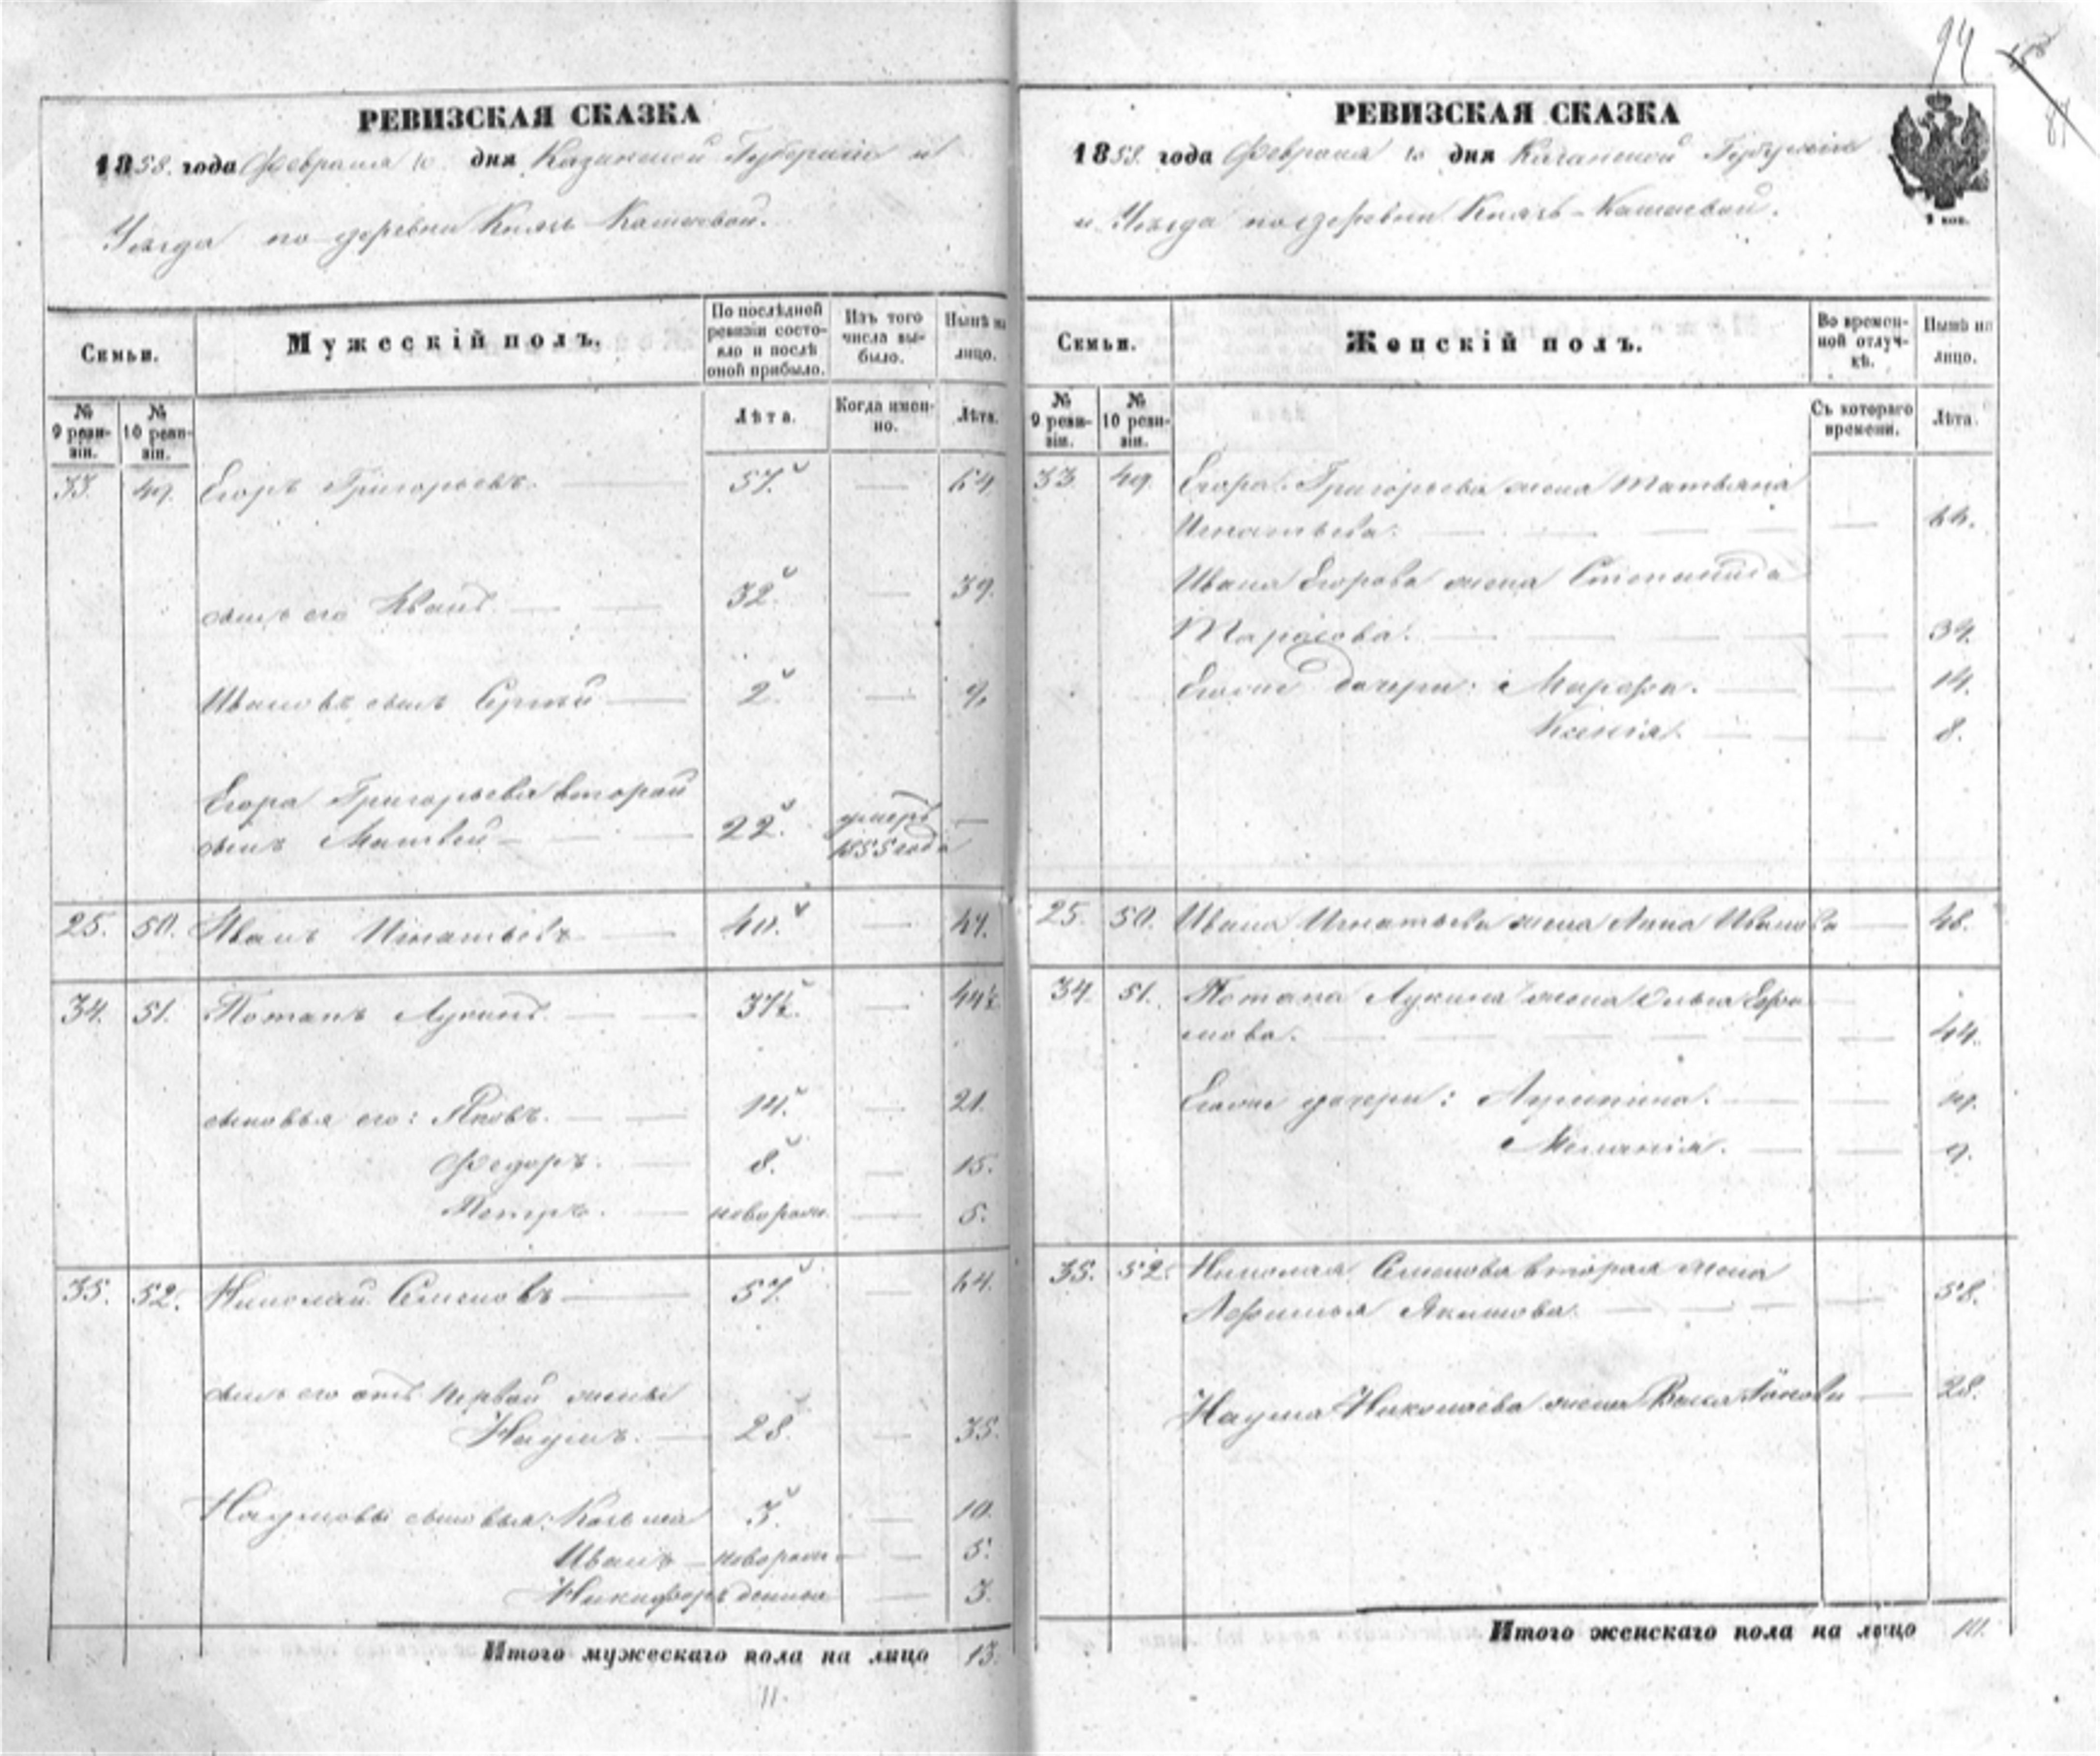 94
РЕВИЗСКАЯ СКАЗКА
1858. года Февраля 10 дня Казанской Губернiи и
Уѣзда по деревни Князь-Камаевой.
Семьи.
Мужескiй полъ.
По послѣдней ревизiи состояло и послѣ оной прибыло.
Изъ того числа выбыло.
Нынѣ на лицо.
№ 9 ревизiи.
№ 10 ревизiи.
Лѣта.
Когда именно.
Лѣта.
33. 49. Егоръ Григорьевъ. 57. 64
сынъ его Иванъ. 32. 39.
Ивановъ сынъ Сергѣй 2. 9.
Егора Григорьева второй
сынъ Матвей 22. умеръ 1855 года
25. 50. Иванъ Игнатьевъ 40. 47.
34. 51. Потапъ Лукинъ. 37½. 44½
сыновья его: Яковъ. 14. 21.
Федоръ. 8. 15.
Петръ. новорож. 5.
35. 52. Николай Семеновъ 57. 64.
сынъ его отъ первой жены
Наумъ. 28. 35.
Наумовы сыновья: Козьма 3. 10.
Иванъ новорож 5.
Никифоръ 3.
Итого мужескаго пола на лицо 13.
11.
РЕВИЗСКАЯ СКАЗКА
1858. года Февраля 10 дня Казанской Губернiи
и Уѣзда по деревни Князь-Камаевой.
Семьи.
Женскiй полъ.
Во временной отлучкѣ.
Нынѣ на лицо.
№ 9 ревизiи.
№ 10 ревизiи.
Съ котораго времени.
Лѣта.
33 49. Егора Григорьева жена Татьяна
Игнатьева. 66.
Ивана Егорова жена Степанида
Тарасова. 34.
Егоже дочери: Марфа. 14.
Ксенiя. 8.
25. 50. Ивана Игнатьева жена Анна Иванова 48.
34. 51. Потапа Лукина жена Ольга Ефре
мова. 44.
Егоже дочери: Акулина.
Меланiя. 9.
35. 52. Николая Семенова вторая жена
Афимья Якимова. 58.
Наума Николаева жена 28.
Итого женскаго пола на лицо